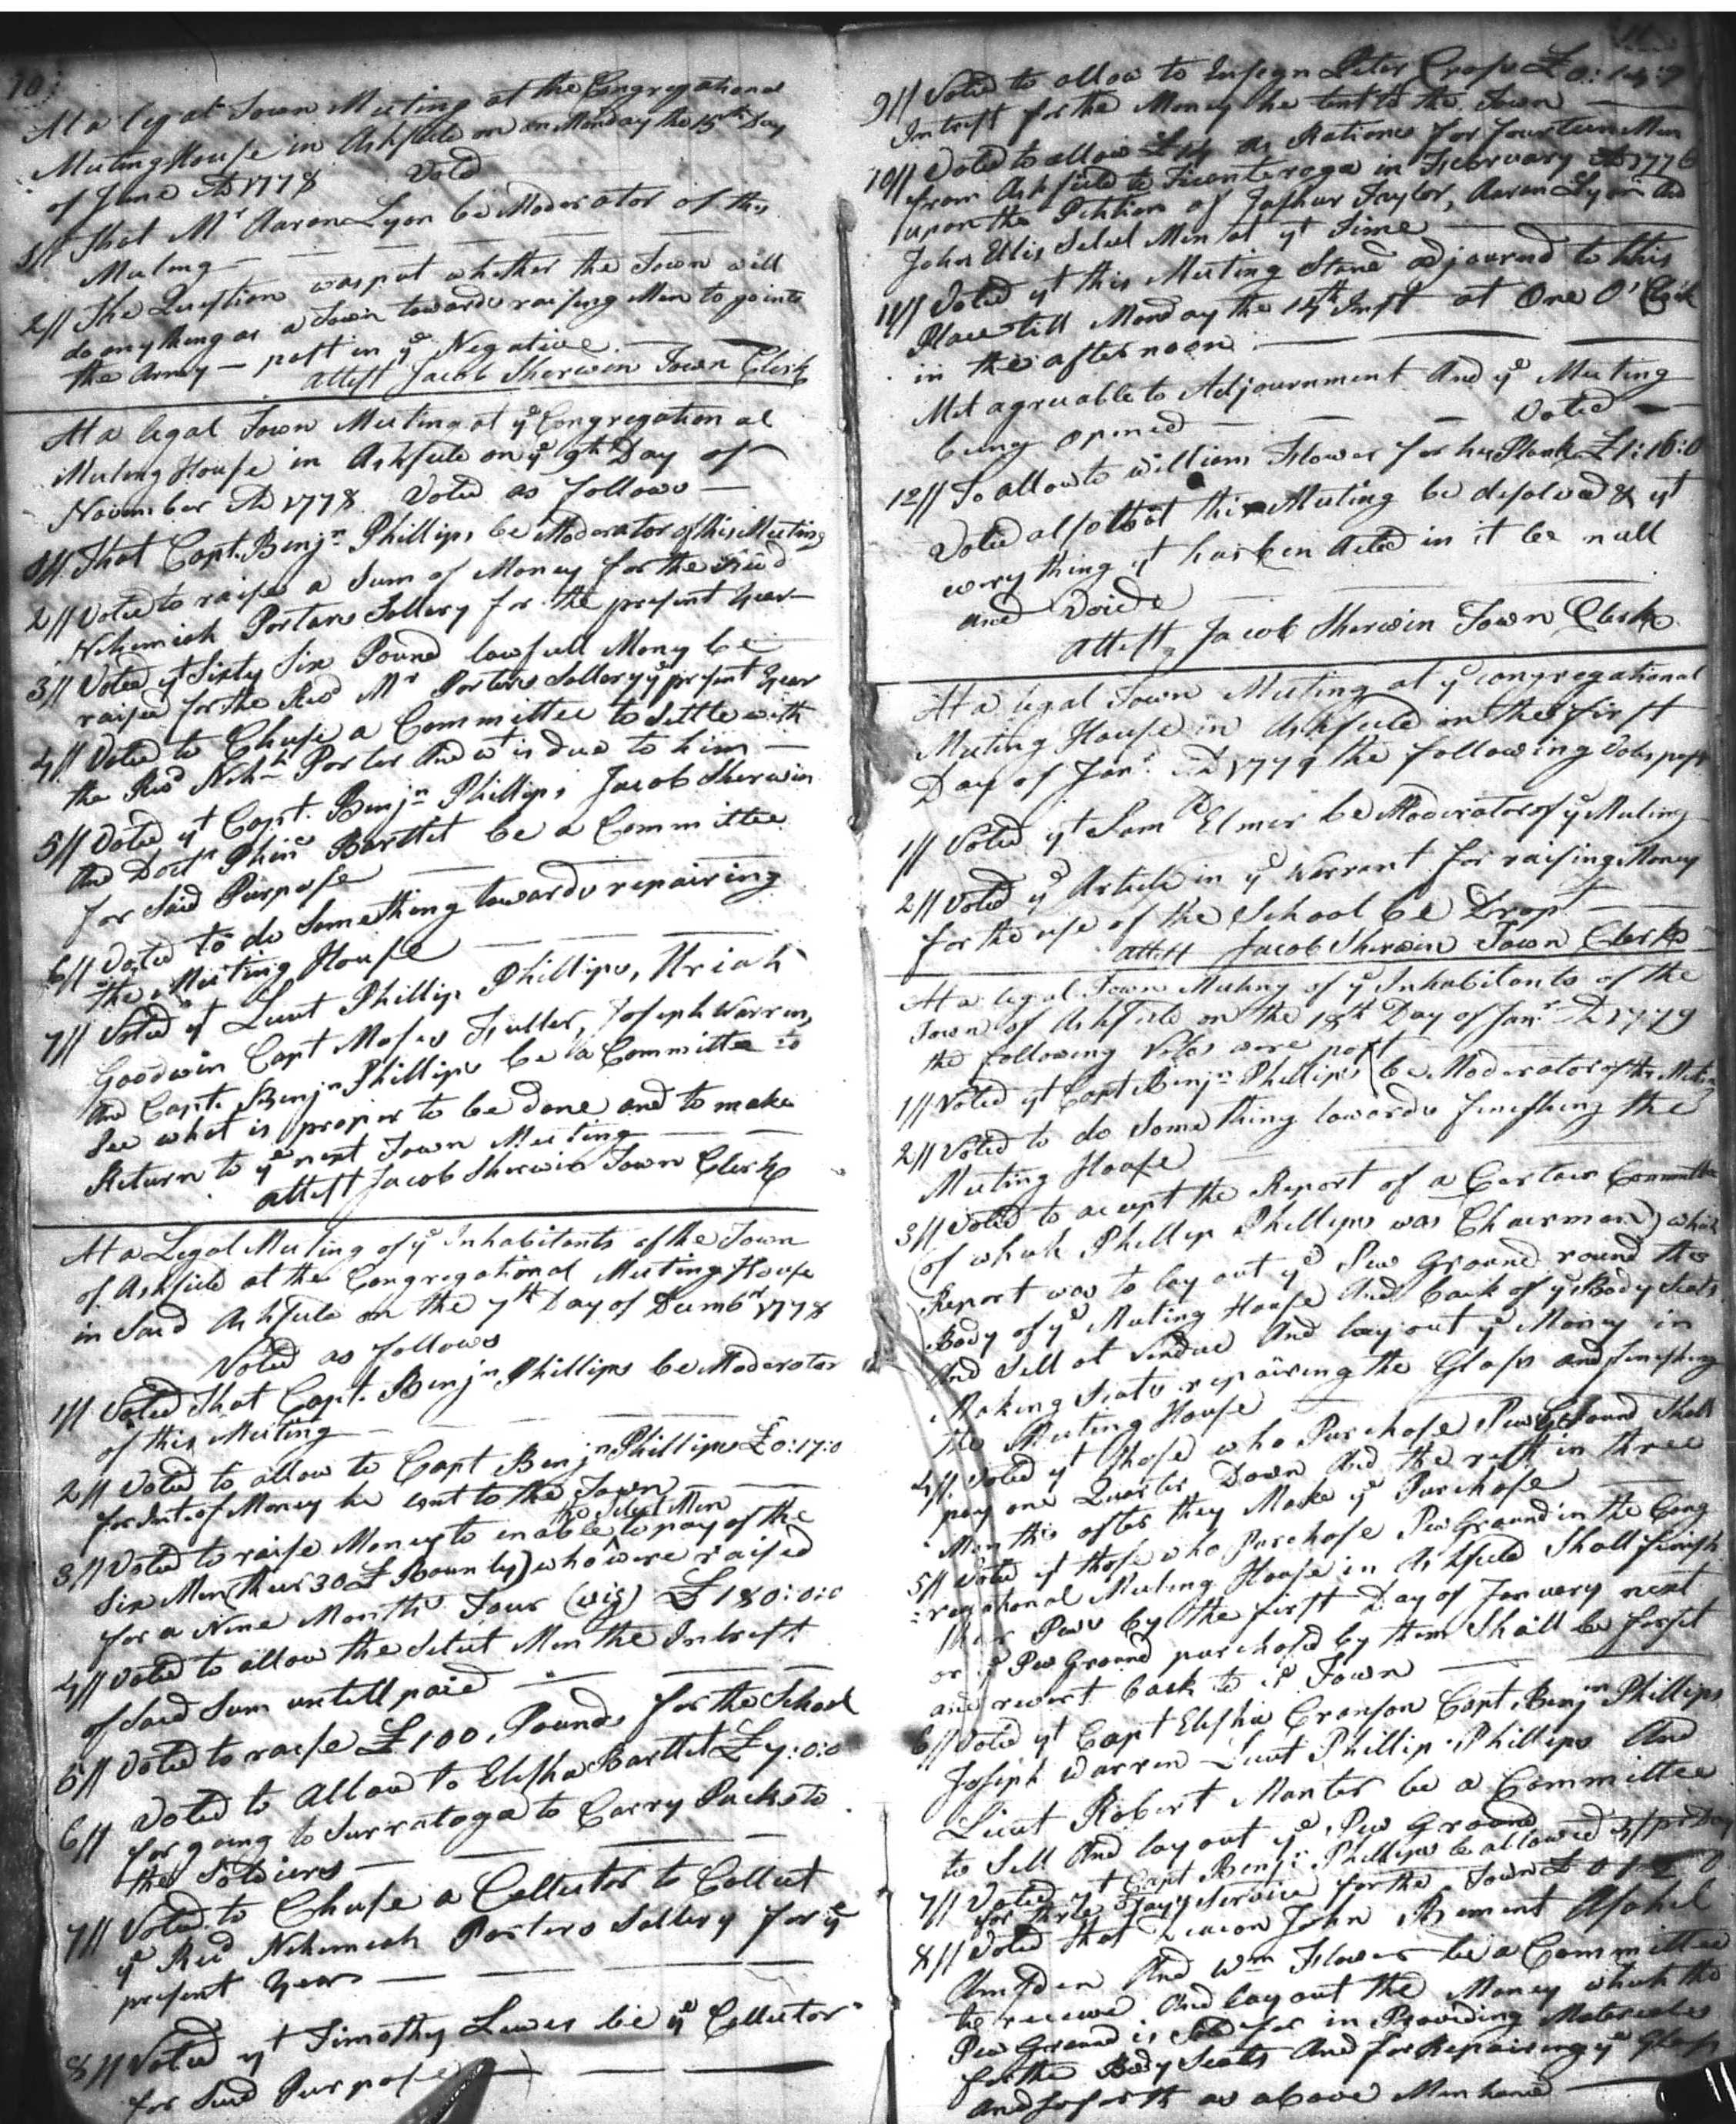 70:
At a legal Town Meeting at the Congregational
Meeting House in Ashfield on on Monday the 15th Day
of June AD 1778 Voted
1// That Mr Aaron Lyon be Moderator of this
Meeting
2// The Question was put whether the Town will
do any thing as a Town towards raising Men to go into
the Army — past in ye Negative
attest Jacob Sherwin Town Clerk
At a legal Town Meeting at ye Congregational
Meeting House in Ashfield on ye 9th Day of
November AD 1778 Voted as follows
1// That Capt. Benjn Phillips be Moderator of this Meeting
2// Voted to raise a Sum of Money for the Revd
Nehemiah Porters Sallery for the present Year
3// Voted yt Sixty Six Pound lawfull Mony be
raised for the Revd Mr Porters Sallery ye present Year
4// Voted to Chuse a Committee to Settle with
the Revd Nehh Porter And wt is due to him
5// Voted yt Capt. Benjn Phillips, Jacob Sherwin
And Doctr Phins Bartlet be a Committee
for Said Purpose
6// Voted to do Something towards repairing
the Meeting House
7// Voted yt Lieut Phillip Phillips, Uriah
Goodwin Capt Moses Fuller, Joseph Warren,
And Capt. Benjn Phillips be a Committee to
See what is proper to be done and to make
Return to ye next Town Meeting
attest Jacob Sherwin Town Clerk
At a Legal Meeting of ye Inhabitants of the Town
of Ashfield at the Congregational Meeting House
in Said Ashfield on the 7th Day of Decembr 1778
Voted as follows
1// Voted That Capt. Benjn Phillips be Moderator
of this Meeting
2// Voted to allow to Capt Benjn Phillips £0:17:0
for Intt of Money he lent to the Town
3// Voted to raise Money to enable the Select Men to pay of the
Six Men (their 30£ Bounty) who were raised
for a Nine Months Tour (viz) £180:0:0
4// Voted to allow the Select Men the Intrest
of Said Sum untill paid
5// Voted to raise £100 Pounds for the School
6// Voted to Allow to Elisha Bartlet £7:0:0
for going to Surratoga to Carry Packs to
the Soldiers
7// Voted to Chuse a Collector to Collect
ye Revd Nehemiah Porters Sallery for ye
present Year
8// Voted yt Timothy Lewes be ye Collector
for Said Purpose
9// Voted to allow to Ensign Peter Cross £0:14:9
Intrest for the Money he lent to the Town
10// Voted to allow £14 as Rations for fourteen Men
from Ashfield to Ticonteroga in February AD 1776
upon the Petition of Jasher Taylor, Aaron Lyon And
John Ellis Select Men at yt Time
11// Voted yt this Meeting Stand adjourned to this
Place till Monday the 14th Inst at One O'Clock
in the afternoon
Met agreeable to Adjournment And ye Meeting
being opened Voted
12// To allow to william Flower for his Plank £1:16:0
Voted also that this Meeting be desolved & yt
every thing yt has ben Acted in it be null
and Voide
attest Jacob Sherwin Town Clerk
At a legal Town Meeting at ye congregational
Meeting House in Ashfield on the first
Day of Janr AD 1779 the following Votes past
1// Voted yt Samll Elmer be Moderator of ye Meeting
2// Voted ye Article in ye Warrent for raising Money
for the use of the School be Dropt
attest Jacob Sherwin Town Clerk
At a legal Town Meeting of ye Inhabitants of the
Town of Ashfield on the 18th Day of Janr AD 1779
the following Votes were past
1// Voted yt Capt Benjn Phillips be Moderator of this Meeting
2// Voted to do Something towards finishing the
Meeting House
3// Voted to accept the Report of a Certain Committee
(of which Phillip Phillips was Chairman) which
Report was to lay out ye Pew Ground round the
Body of ye Meeting House And back of ye Body Seats
And Sell at Vendue And lay out ye Money in
Making Seats repairing the Glass and finishing
the Meeting House
4// Voted yt those who Purchase Pew Ground Shall
pay one Quarter Down And the rest in three
Months after they Make ye Purchase
5// Voted yt those who Purchase Pew Ground in the Cong
=regational Meeting House in Ashfield Shall finish
their Pews by the first Day of January next
or ye Pew Ground purchased by them Shall be forfet
and revert back to ye Town
6// Voted yt Capt Elisha Cranson Capt Benjn Phillips
Joseph Warren Lieut Phillip Phillips And
Lieut Robert Manter be a Committee
to Sell And lay out ye Pew Ground
7// Voted yt Capt Benjn Phillips be allowed 4/ pr Day
for three Days Service for the Town
8// Voted that Deacon John Bement Asahel
Amsden And Wm Flower be a Committee
to receive And lay out the Money which the
Pew Ground is Sold for in Providing Materials
for the Body Seats And for Repairing ye Glass
And so forth as above Mentioned